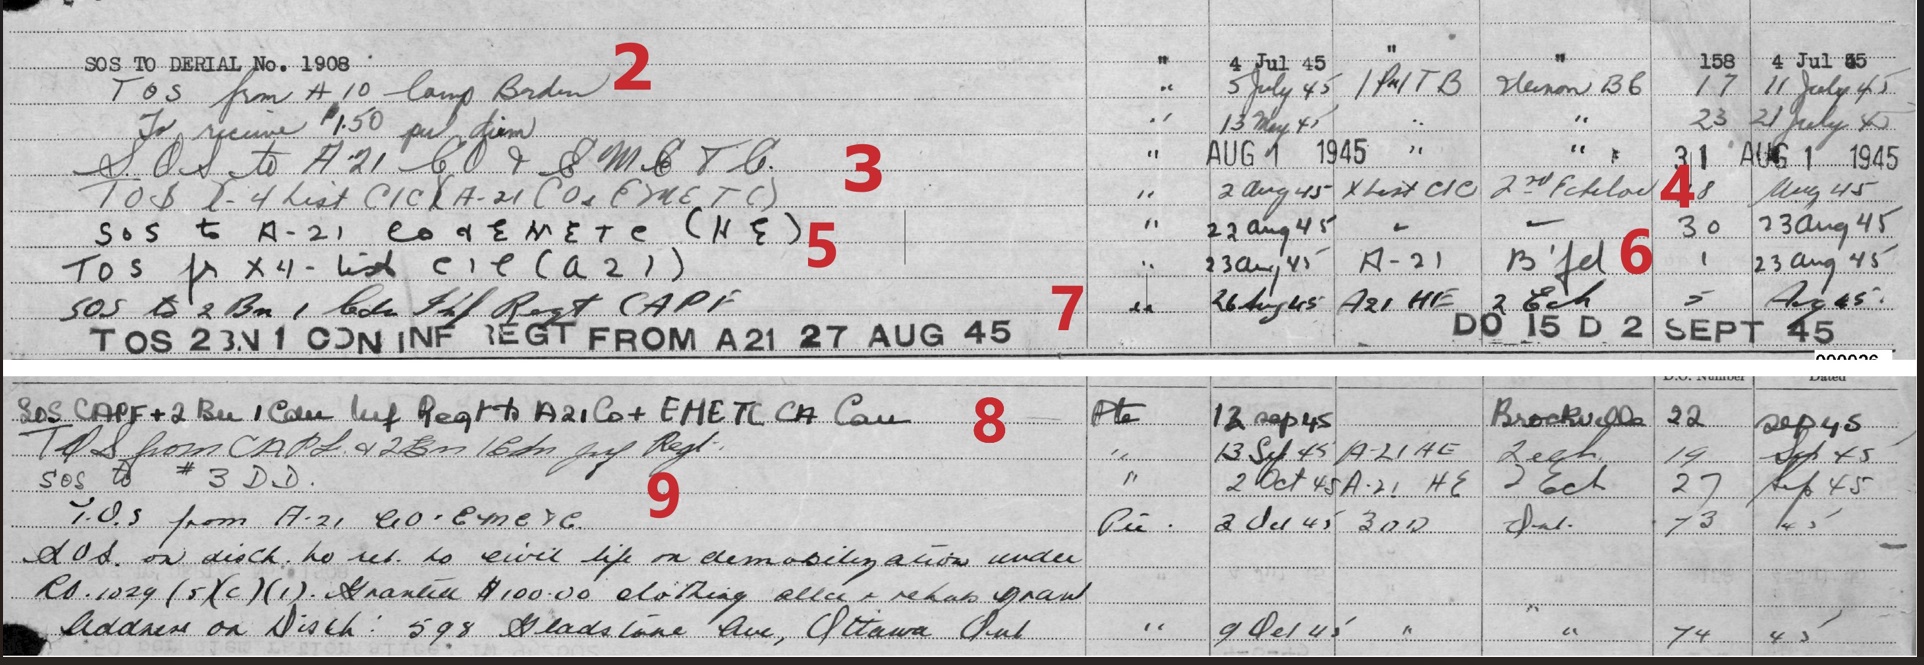 SOS TO DERIAL No. 1908 2 " 4 Jul 45 " " 158 4 Jul 45
TOS from A 10 Camp Borden " 5 July 45 1 TB Vernon BC 17 11 July 45
To receive $1.50 per diem " 13 May 45 " " 23 21 July 45
S.O.S to A 21 CO & EMETC. 3 " AUG 1 1945 " " 31 AUG 1 1945
TOS X-4 List CIC (A-21 CO & EMETC) " 2 Aug 45 X List CIC 2nd Echelon 4 8 Aug 45
SOS to A-21 CO & EMETC (HE) 5 " 22 Aug 45 30 23 Aug 45
TOS fr X4-list CIC (A21) " 23 Aug 45 A-21 B'fd 6 1 23 Aug 45
SOS to 2 Bn 1 Cdn Inf Regt CAPF 7 " 26 Aug 45 A21 HE 2 Ech 5 Aug 45.
TOS 2 BN 1 CDN INF REGT FROM A21 27 AUG 45 DO 15 D 2 SEPT 45
D.O. Number Dated
SOS CAPF + 2 Bn 1 Cdn Inf Regt to A21 Co + EMETC CA Can 8 Pte 12 Sep 45 Brockville 22 Sep 45
TOS from CAPF & 2 Bn 1 Cdn Inf Regt. " 13 Sep 45 A-21 HE 2 ech. 19 Sep 45
SOS to #3 D.D. 9 " 2 Oct 45 A-21 HE 2 Ech 27 Sep 45
T.O.S from A-21 CO. EMETC. Pte. 2 Oct 45 3 DD Ont. 73 45
SOS. on disch. to ret. to civil life on demobilization under
RO. 1029 (5)(c)(1). Granted $100.00 clothing allce + rehab grant "
Address on Disch: 598 Gladstone Ave, Ottawa Ont " 9 Oct 45 " " 74 45